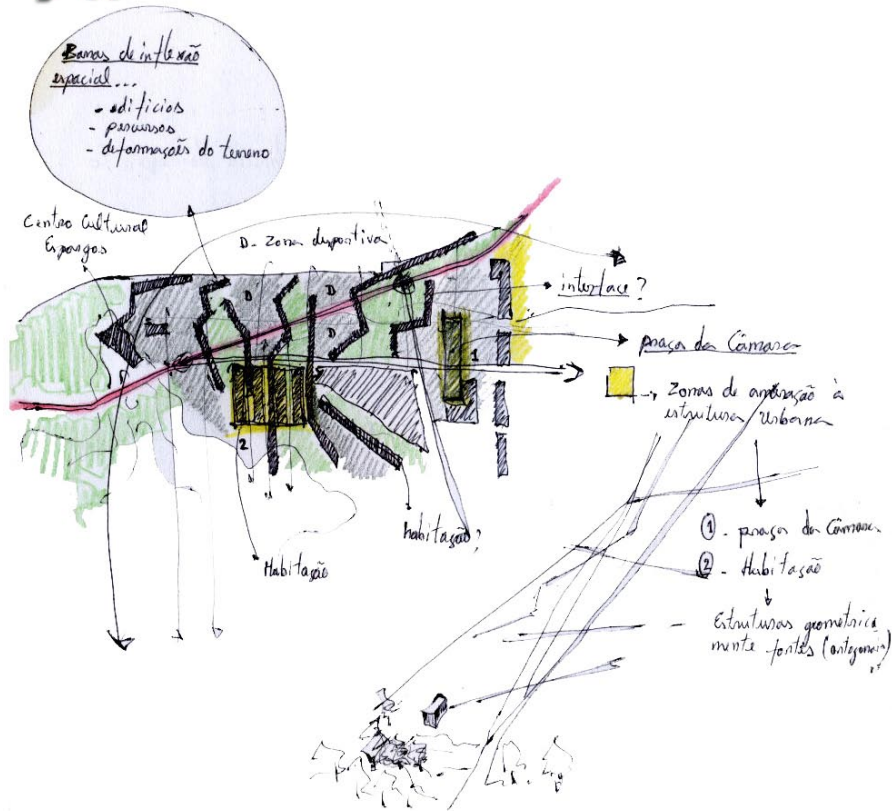 Barras de inflexão
espacial...
- edifícios
- percursos
- deformações do terreno
Centro Cultural
Espargos
D - Zona desportiva
D
D
D
D
interface?
praça da Câmara
1
→ Zonas de amarração à
estrutura urbana
2
habitação?
Habitação
① - praça da Câmara
② - Habitação
Estruturas geometrica
mente fortes (ortogonais)